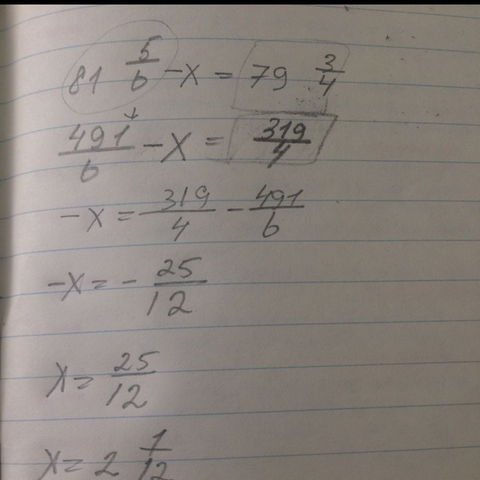 81 5/6 - x = 79 3/4
491/6 - x = 319/4
-x = 319/4 - 491/6
-x = - 25/12
x = 25/12
x = 2 1/12